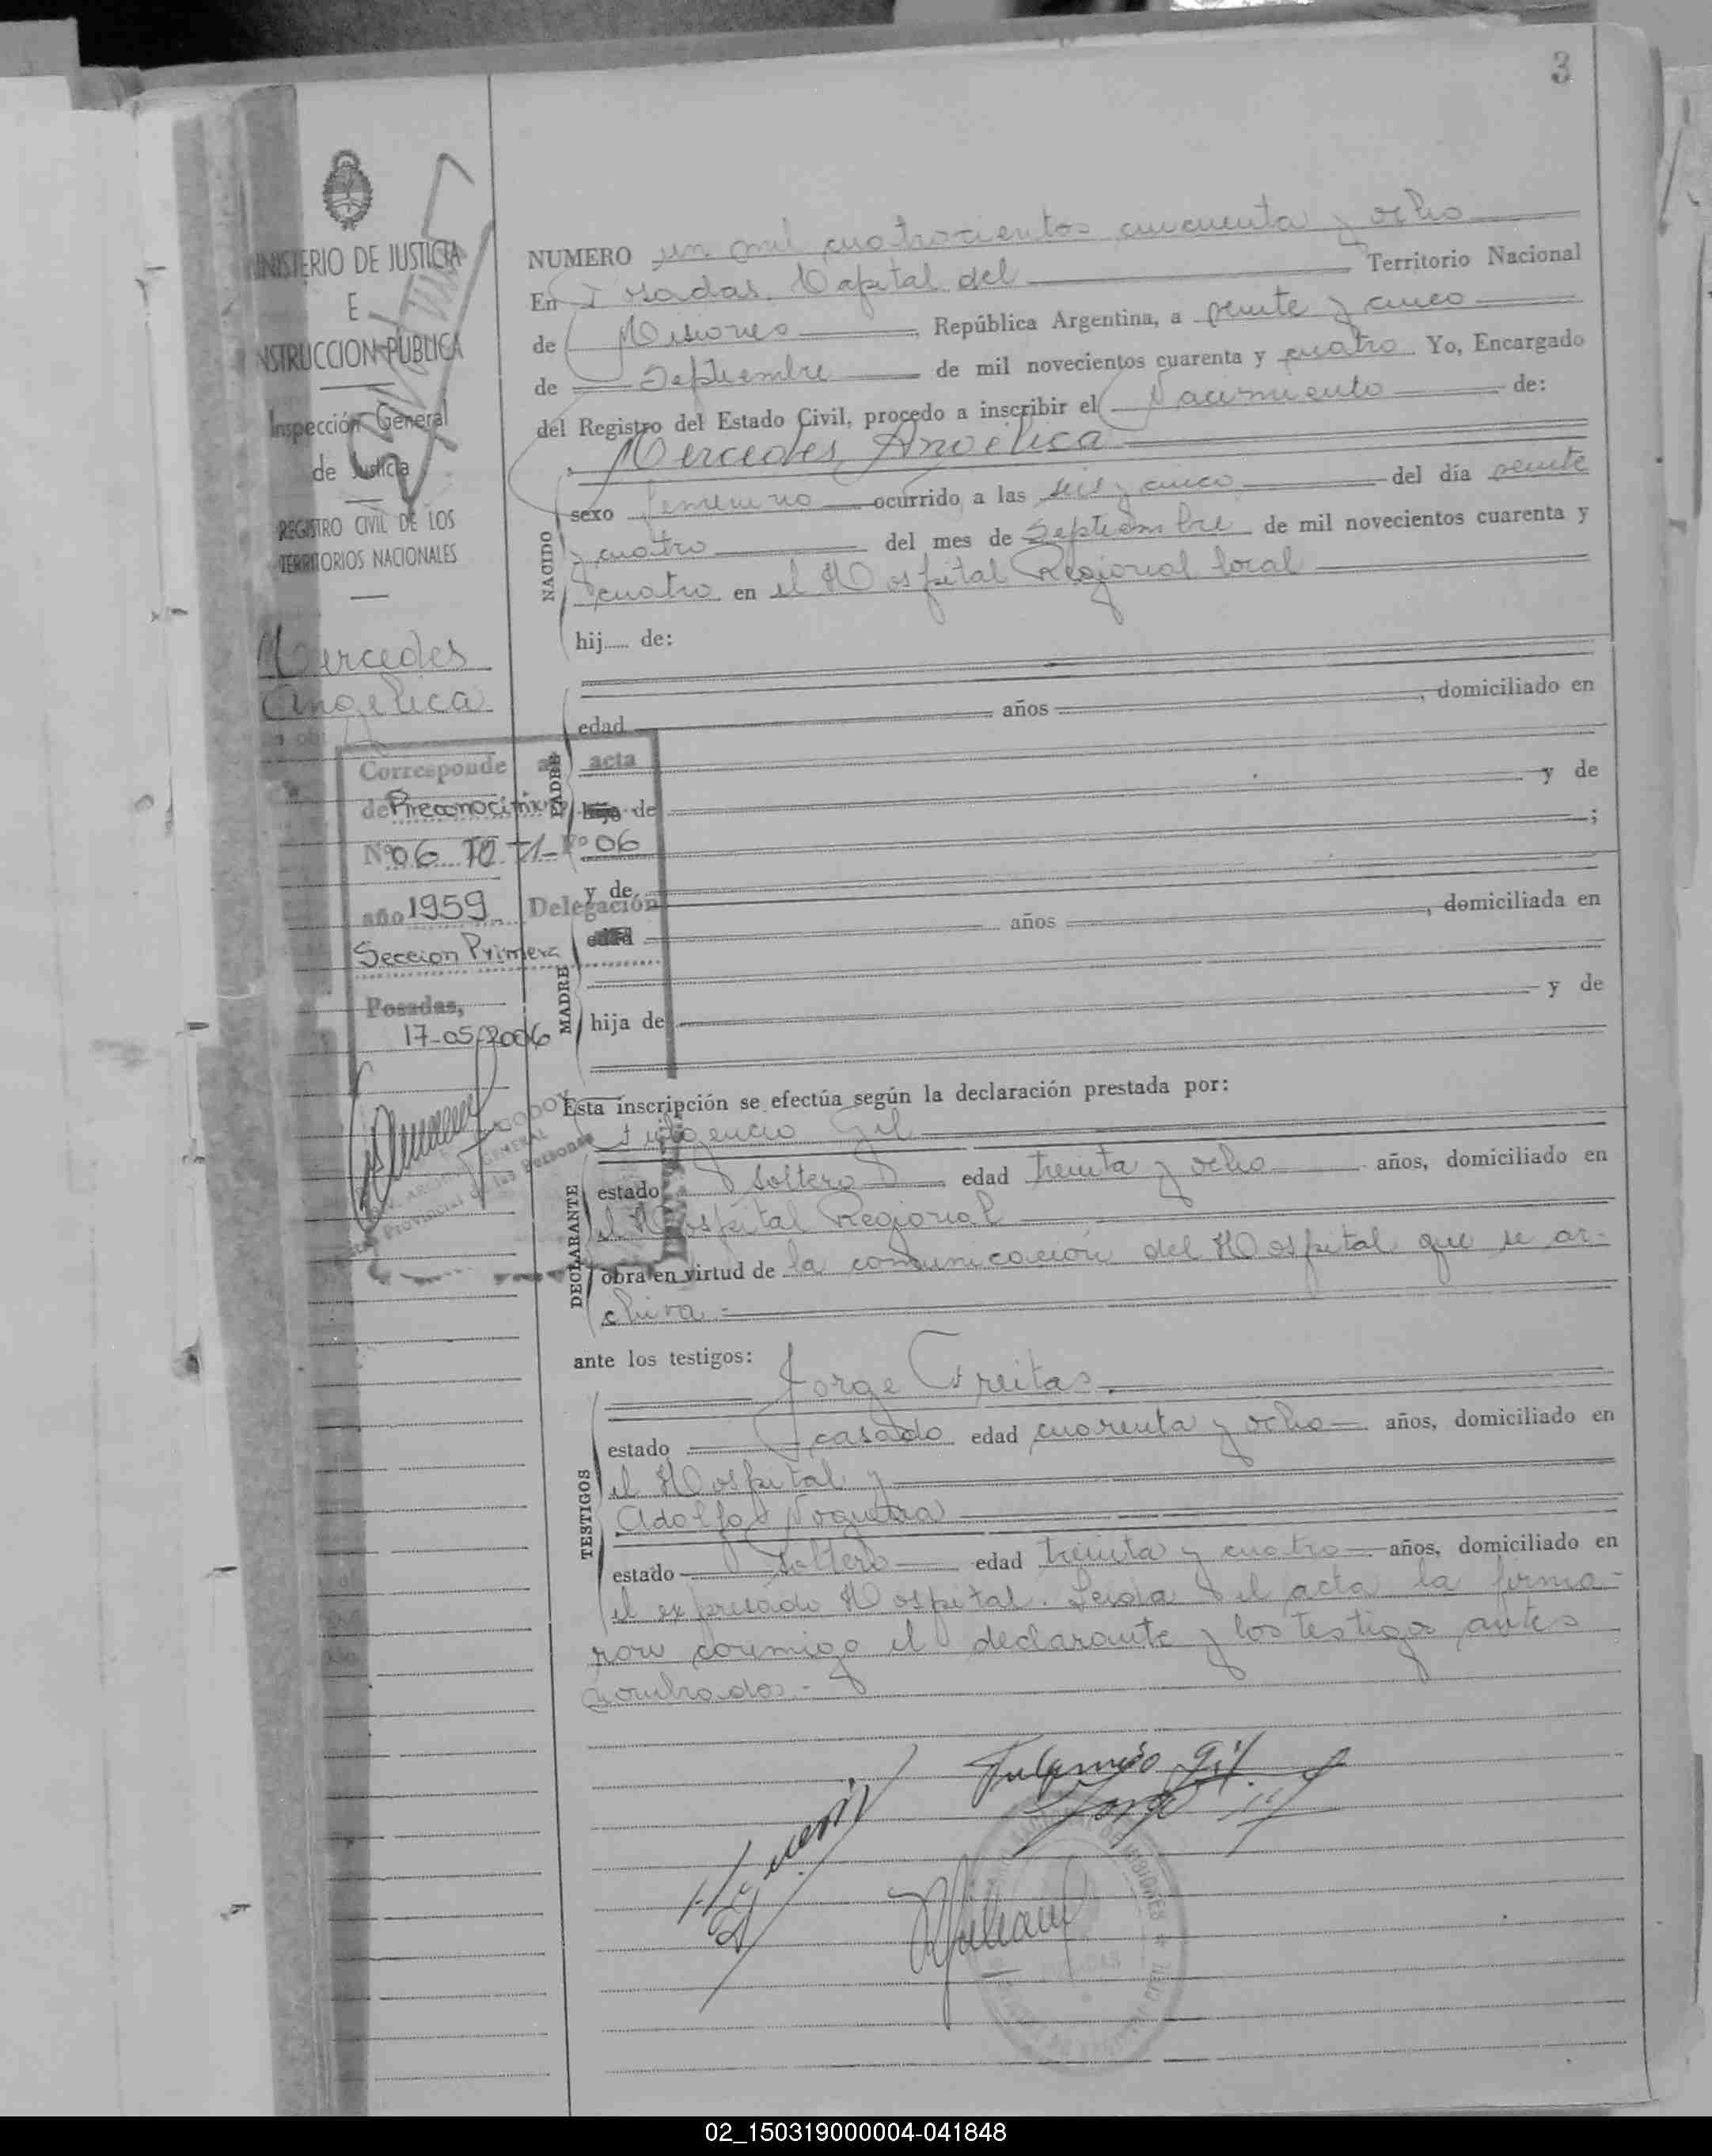 3
MINISTERIO DE JUSTICIA
E
INSTRUCCION PUBLICA
Inspección General
de Justicia
REGISTRO CIVIL DE LOS
TERRITORIOS NACIONALES
Mercedes
Angelica
Corresponde al acta
de Reconocimiento
Nº 06 Tº T1- Fº 06
año 1959 Delegación
Seccion Primera
Posadas,
17-05-2006
NUMERO un mil cuatrocientos cincuenta y ocho
En Posadas, Capital del Territorio Nacional
de Misiones República Argentina, a veinte y cinco
de Septiembre de mil novecientos cuarenta y cuatro Yo, Encargado
del Registro del Estado Civil, procedo a inscribir el Nacimiento de:
Mercedes Angelica
NACIDO
sexo femenino ocurrido a las seis y cinco del día veinte
y cuatro del mes de Septiembre de mil novecientos cuarenta y
cuatro en el Hospital Regional local
hij..... de:
PADRE
edad años , domiciliado en
y de
hijo de ;
y de
MADRE
edad años , domiciliada en
hija de y de
Esta inscripción se efectúa según la declaración prestada por:
Fulgencio Gil
DECLARANTE
estado soltero edad treinta y ocho años, domiciliado en
el Hospital Regional
obra en virtud de la comunicación del Hospital que se ar-
chiva.-
ante los testigos:
Jorge Freitas
TESTIGOS
estado casado edad cuarenta y ocho años, domiciliado en
el Hospital y
Adolfo Noguera
estado soltero edad treinta y cuatro años, domiciliado en
el expresado Hospital. Leida el acta la firma-
ron conmigo el declarante y los testigos antes
nombrados.-
Fulgencio Gil
Jorge
02_150319000004-041848